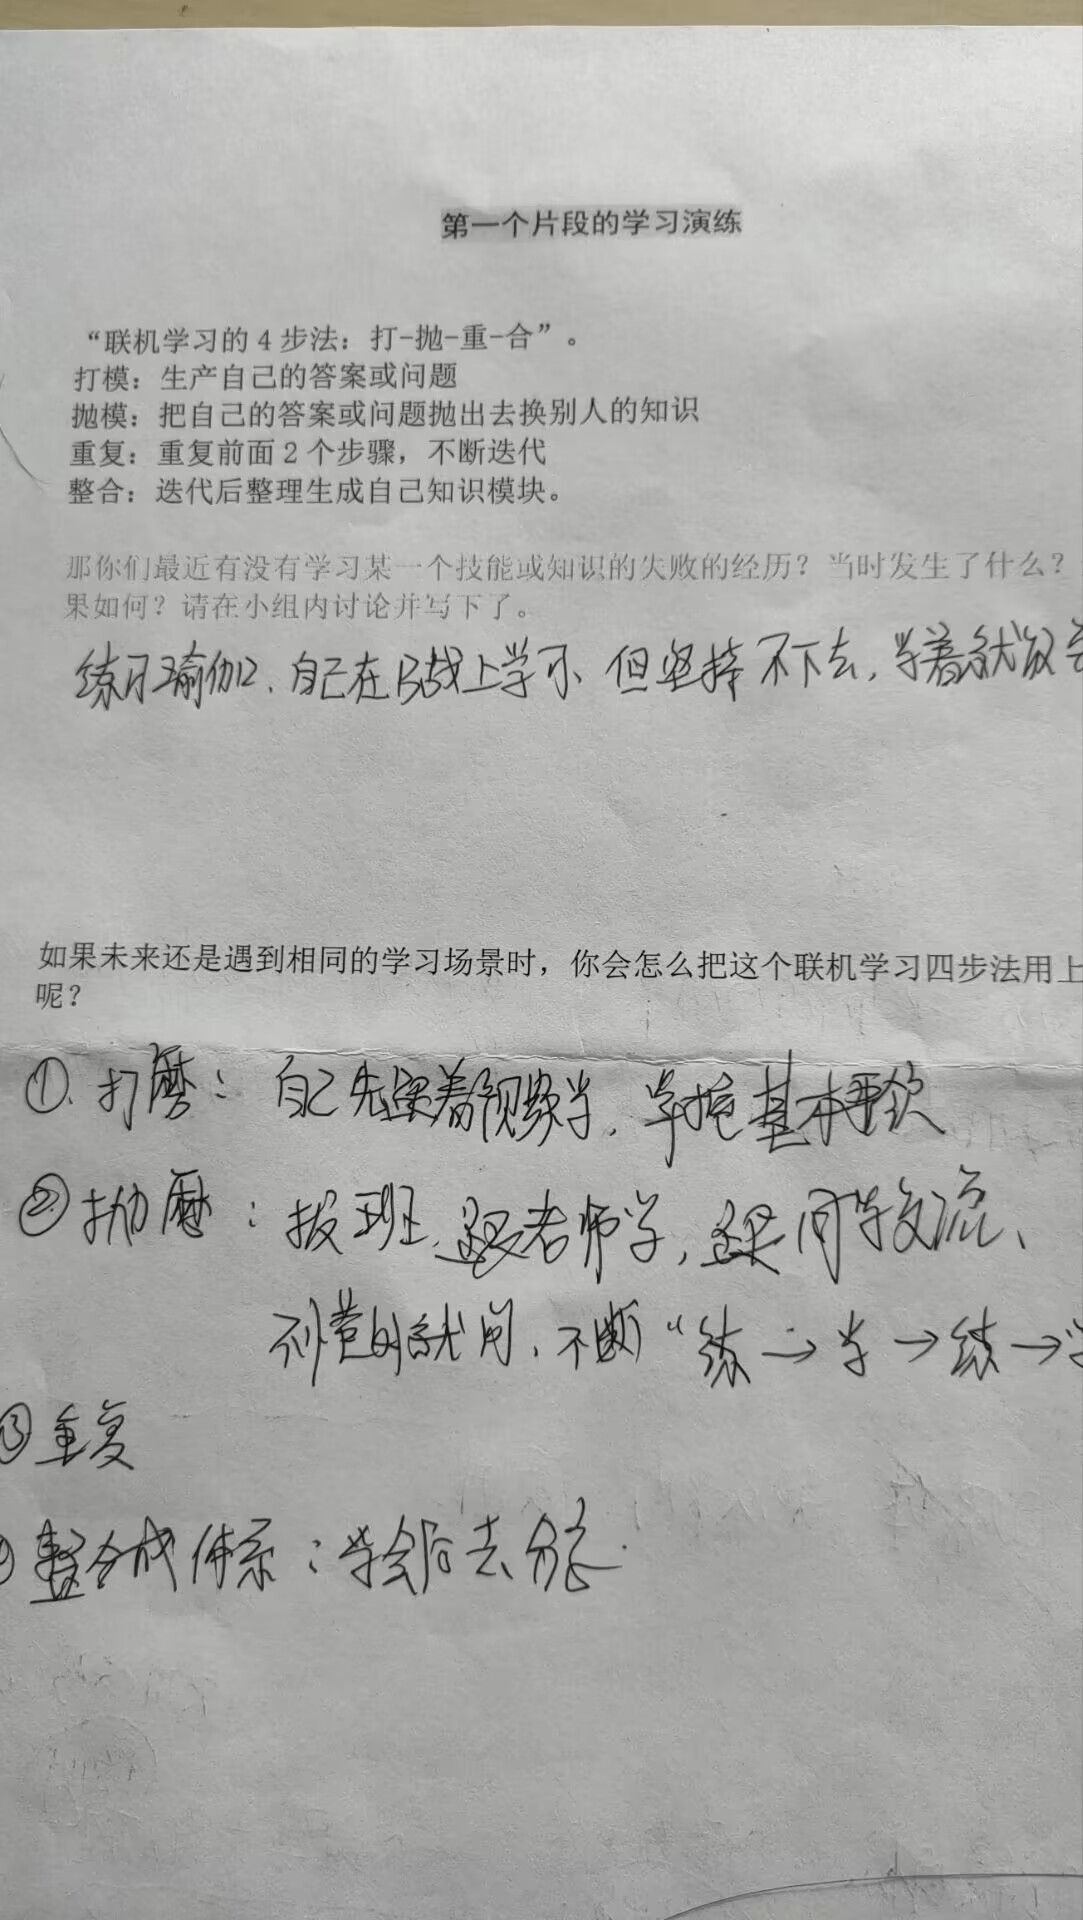 第一个片段的学习演练
“联机学习的4步法：打-抛-重-合”。
打模：生产自己的答案或问题
抛模：把自己的答案或问题抛出去换别人的知识
重复：重复前面2个步骤，不断迭代
整合：迭代后整理生成自己知识模块。
那你们最近有没有学习某一个技能或知识的失败的经历？当时发生了什么？
果如何？请在小组内讨论并写下了。
练习瑜伽，自己在B战上学习，但坚持不下去，学着就放
如果未来还是遇到相同的学习场景时，你会怎么把这个联机学习四步法用上
呢？
①、打磨：自己先跟着视频学，掌握基本要领
②抛磨：报班，跟老师学，跟同学交流、
不懂的就问，不断“练→学→练→学
③重复
整合成体系：学会后去分享.